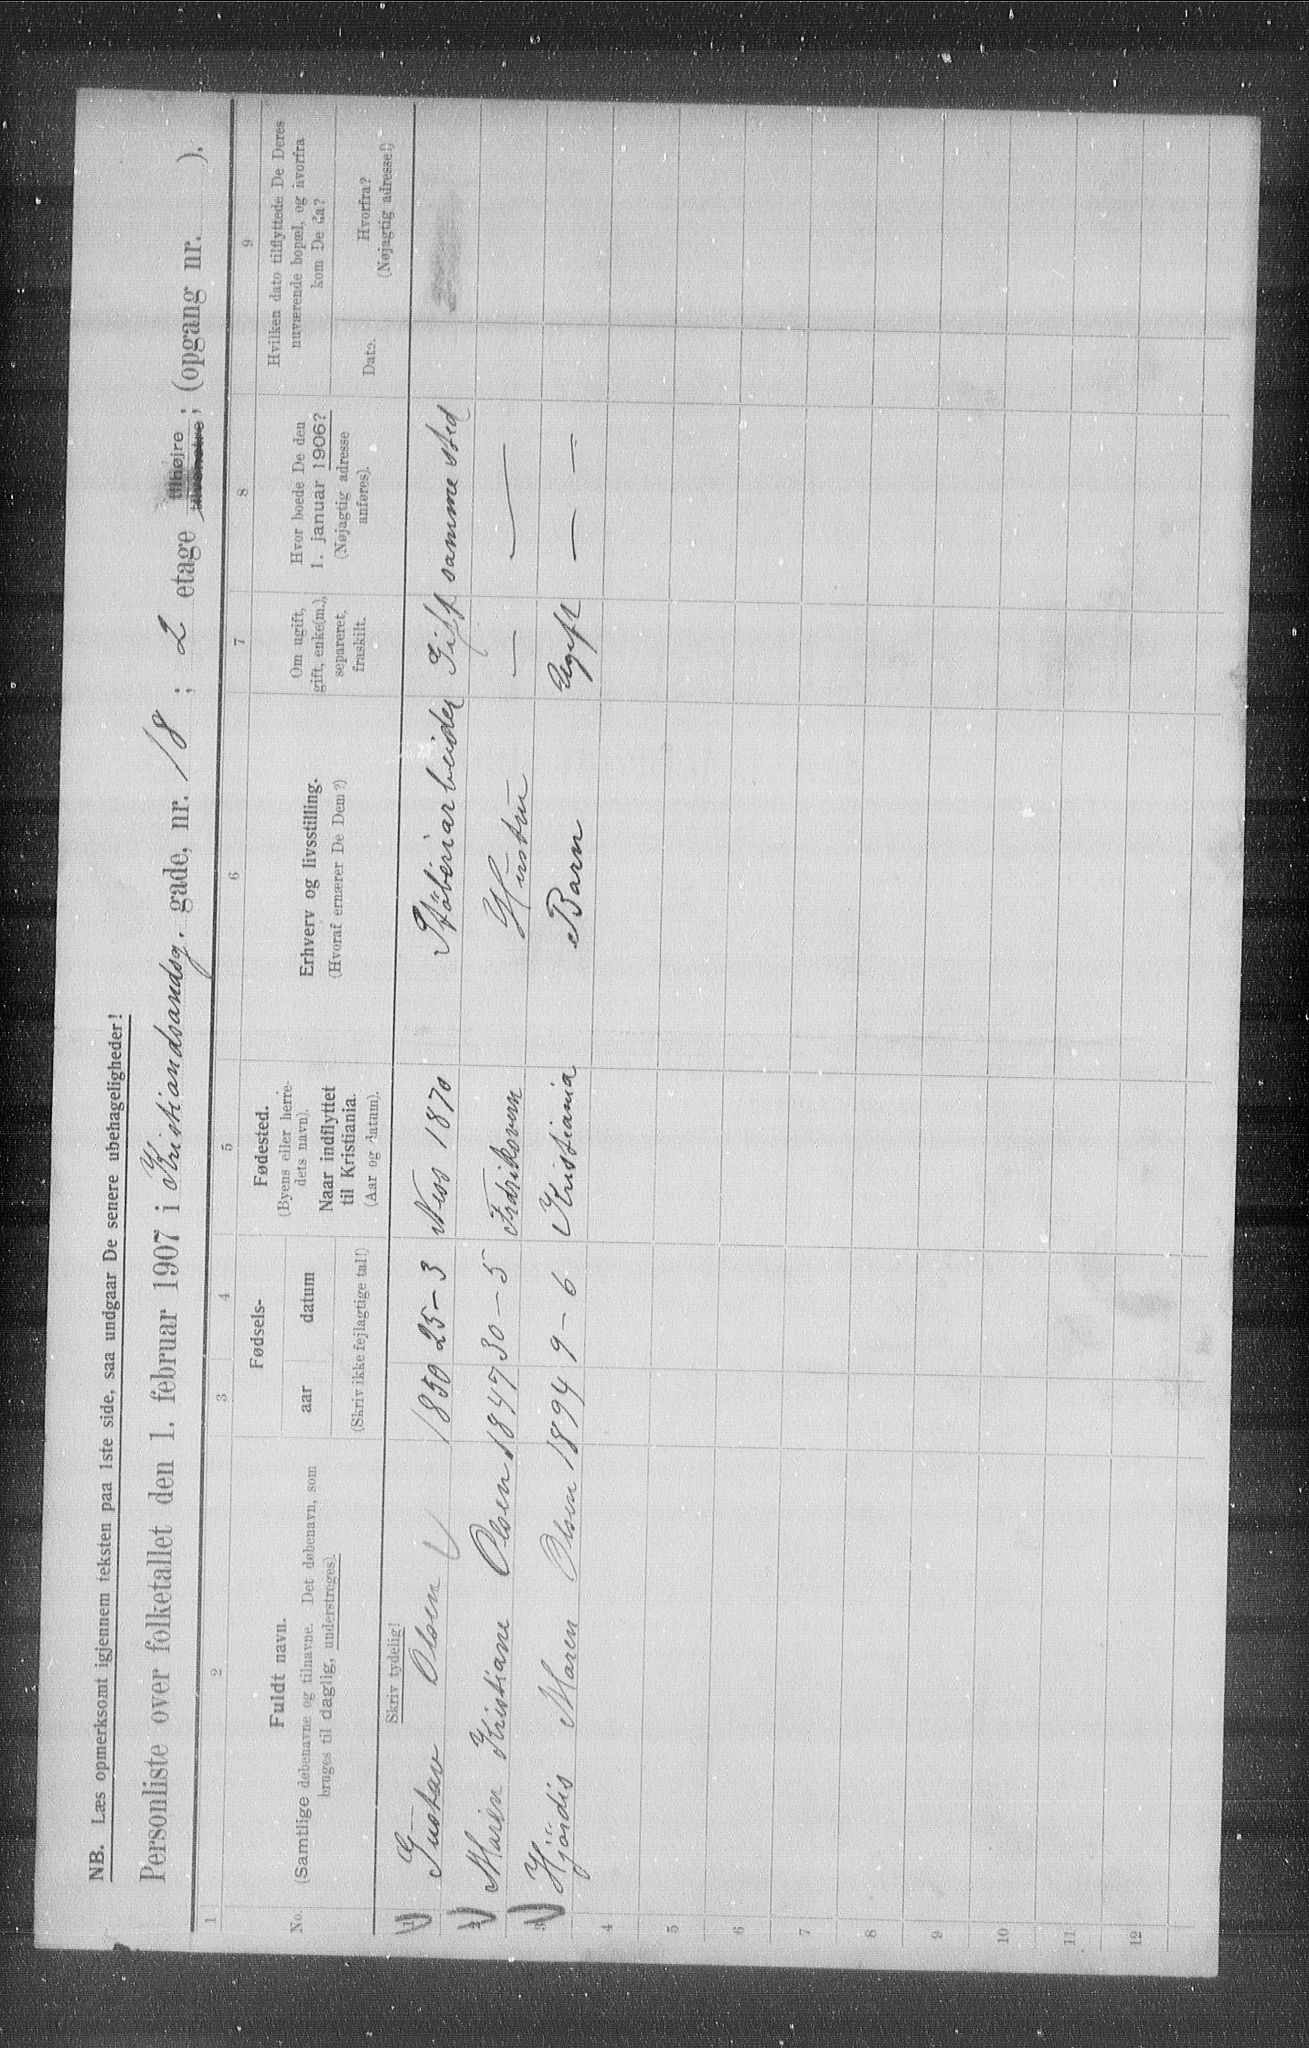 NB. Læs opmerksomt igjennem teksten paa 1ste side, saa undgaar De senere ubehageligheder!
Personliste over folketallet den 1. februar 1907 i Kristiandsandsg. gade, nr. 18 ; 2 etage tilhøjre tilvenstre ; (opgang nr. ).
1 2 3 4 5 6 7 8 9
No.
Fuldt navn.
(Samtlige døbenavne og tilnavne. Det døbenavn, som
bruges til daglig, understreges).
Skriv tydelig!
Fødsels-
aar datum
(Skriv ikke fejlagtige tal!)
Fødested.
(Byens eller herre-
dets navn).
Naar indflyttet
til Kristiania.
(Aar og datum).
Erhverv og livsstilling.
(Hvoraf ernærer De Dem?)
Om ugift,
gift, enke(m.),
separeret,
fraskilt.
Hvor boede De den
1. januar 1906?
(Nøjagtig adresse
anføres).
Hvilken dato tilflyttede De Deres
nuværende bopæl, og hvorfra
kom De da?
Dato.
Hvorfra?
(Nøjagtig adresse!)
1 Gustav Olsen 1850 25-3 Ness 1870 Støberiarbeider Gift samme sted
2 Maren Kristiane Olsen 1847 30-5 Hustru — —
3 Hjördis Maren Olsen 1894 9-6 Kristiania Barn Ugift — —
4
5
6
7
8
9
10
11
12